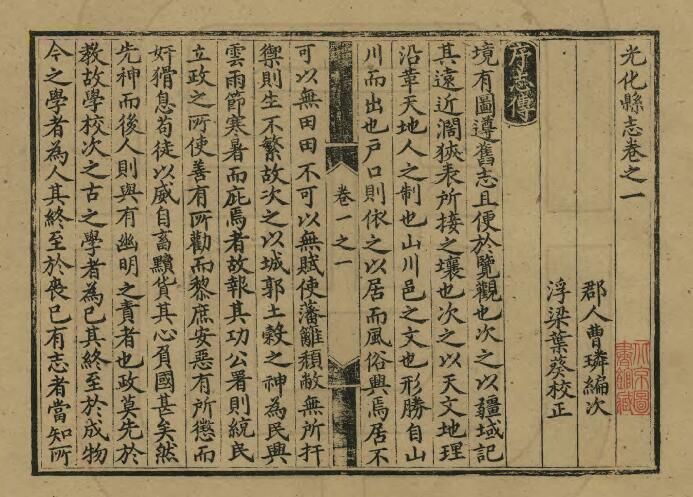 光化縣志卷之一
郡人曹璘編次
浮梁葉葵校正
序志傳
境有圖遵舊志且便於覽觀也次之以疆域記
其遠近濶狹表所接之壤也次之以天文地理
沿革天地人之制也山川邑之文也形勝自山
川而出也戶口則依之以居而風俗興焉居不
卷一之一
可以無田田不可以無賦使藩籬頹敝無所扞
禦則生不繁故次之以城郭土穀之神為民興
雲雨節寒暑而庇焉者故報其功公署則統民
立政之所使善有所勸而黎庶安惡有所懲而
奸猾息苟徒以威自畜黷貨其心負國甚矣然
先神而後人則與有幽明之責者也政莫先於
教故學校次之古之學者為己其終至於成物
今之學者為人其終至於喪己有志者當知所